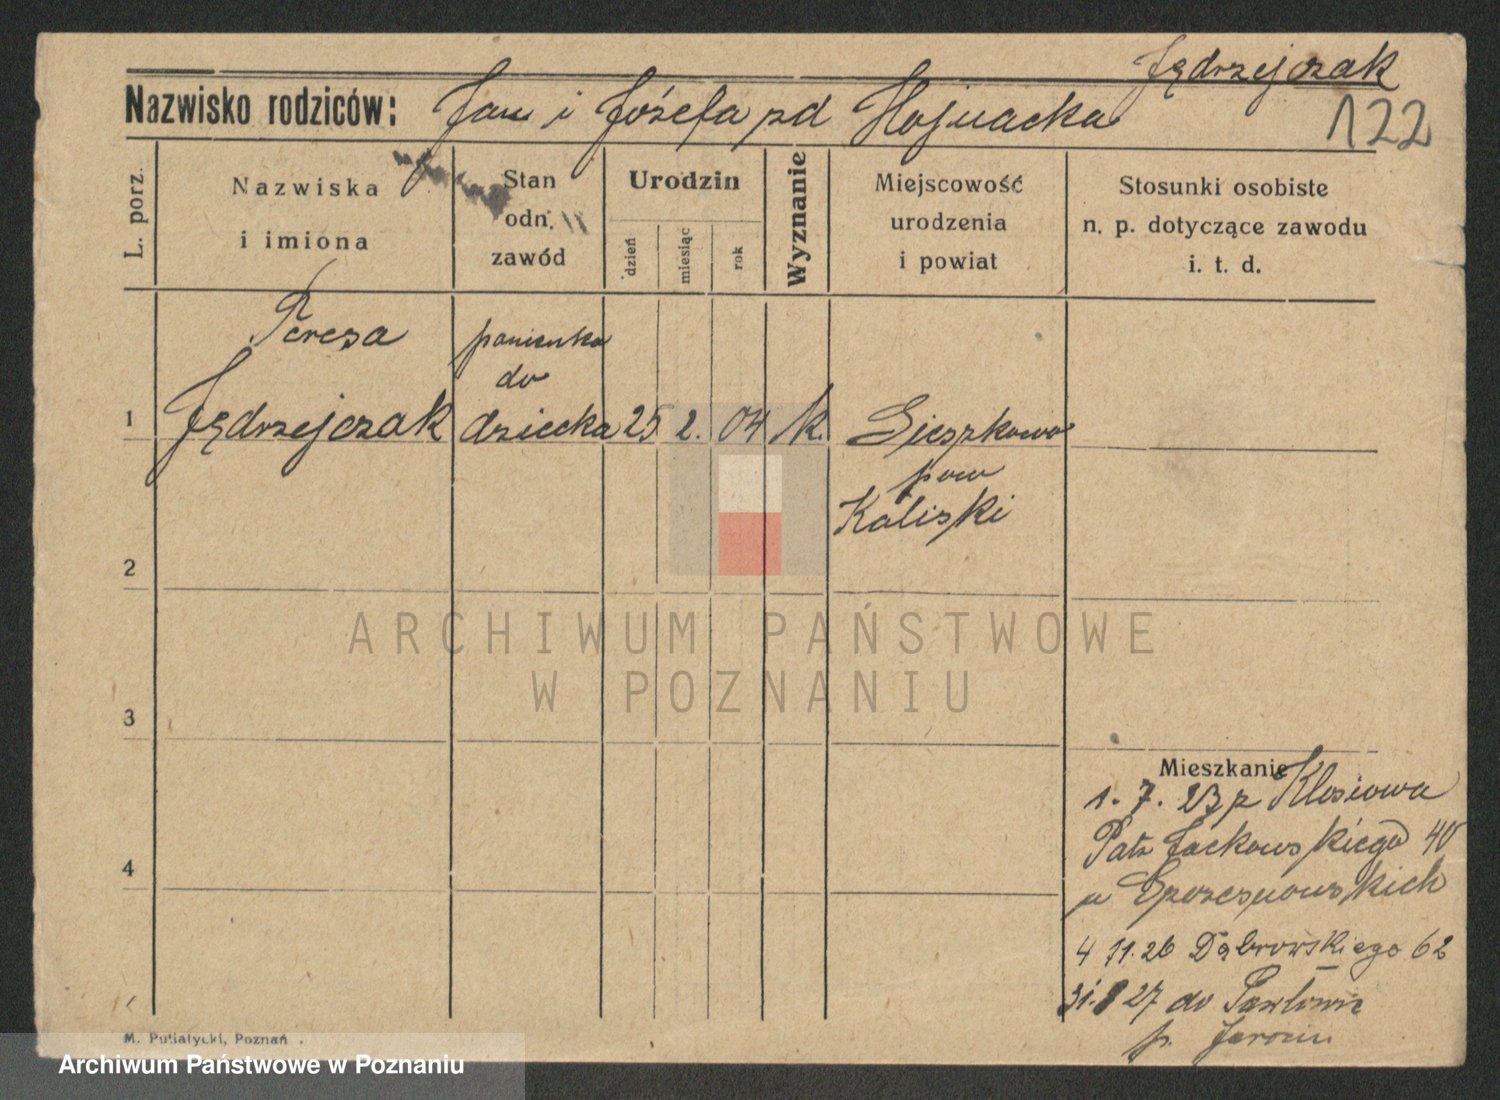 Jędrzejczak
Nazwisko rodziców: Jan i Józefa pd Hojnacka
122
L. porz.
Nazwiska
i imiona
Stan
odn.
zawód
Urodzin
dzień
miesiąc
rok
Wyznanie
Miejscowość
urodzenia
i powiat
Stosunki osobiste
n. p. dotyczące zawodu
i. t. d.
Teresa
panienka
do
1 Jędrzejczak dziecka 25 2. 04 k. Gieszkowo
pow
Kaliski
2
ARCHIWUM PAŃSTWOWE
W POZNANIU
3
Mieszkanie
1. 7. 23 z Kłosiowa
Patr Jackowskiego 40
u
4
4 11. 26 Dąbrowskiego 62
31. 8 27 do Pawłowic
p. Jarocin
M. Putiatycki, Poznań.
Archiwum Państwowe w Poznaniu